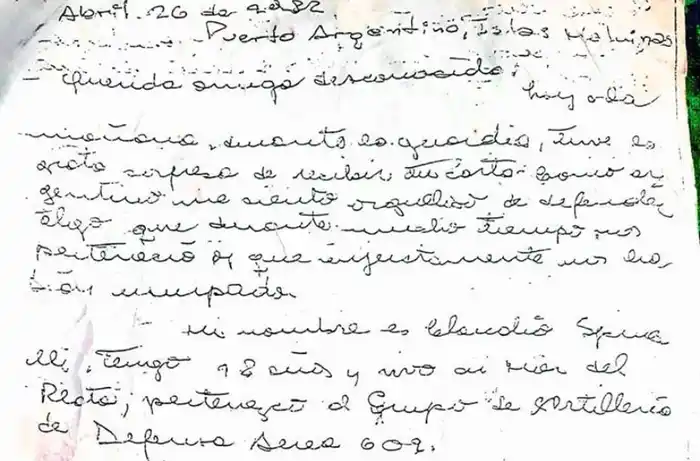 Abril 26 de 1982
Puerto Argentino, Islas Malvinas
- Querida amiga desconocida: hoy a la
mañana, durante la guardia, tuve la
grata sorpresa de recibir tu carta. Como ar
gentino me siento orgulloso de defender
algo que durante mucho tiempo nos
perteneció y que injustamente nos ha
bían usurpado.
- Mi nombre es Claudio Spina
lli, tengo 18 años y vivo en Mar del
Plata, pertenezco al Grupo de Artillería
de Defensa Aerea 602.